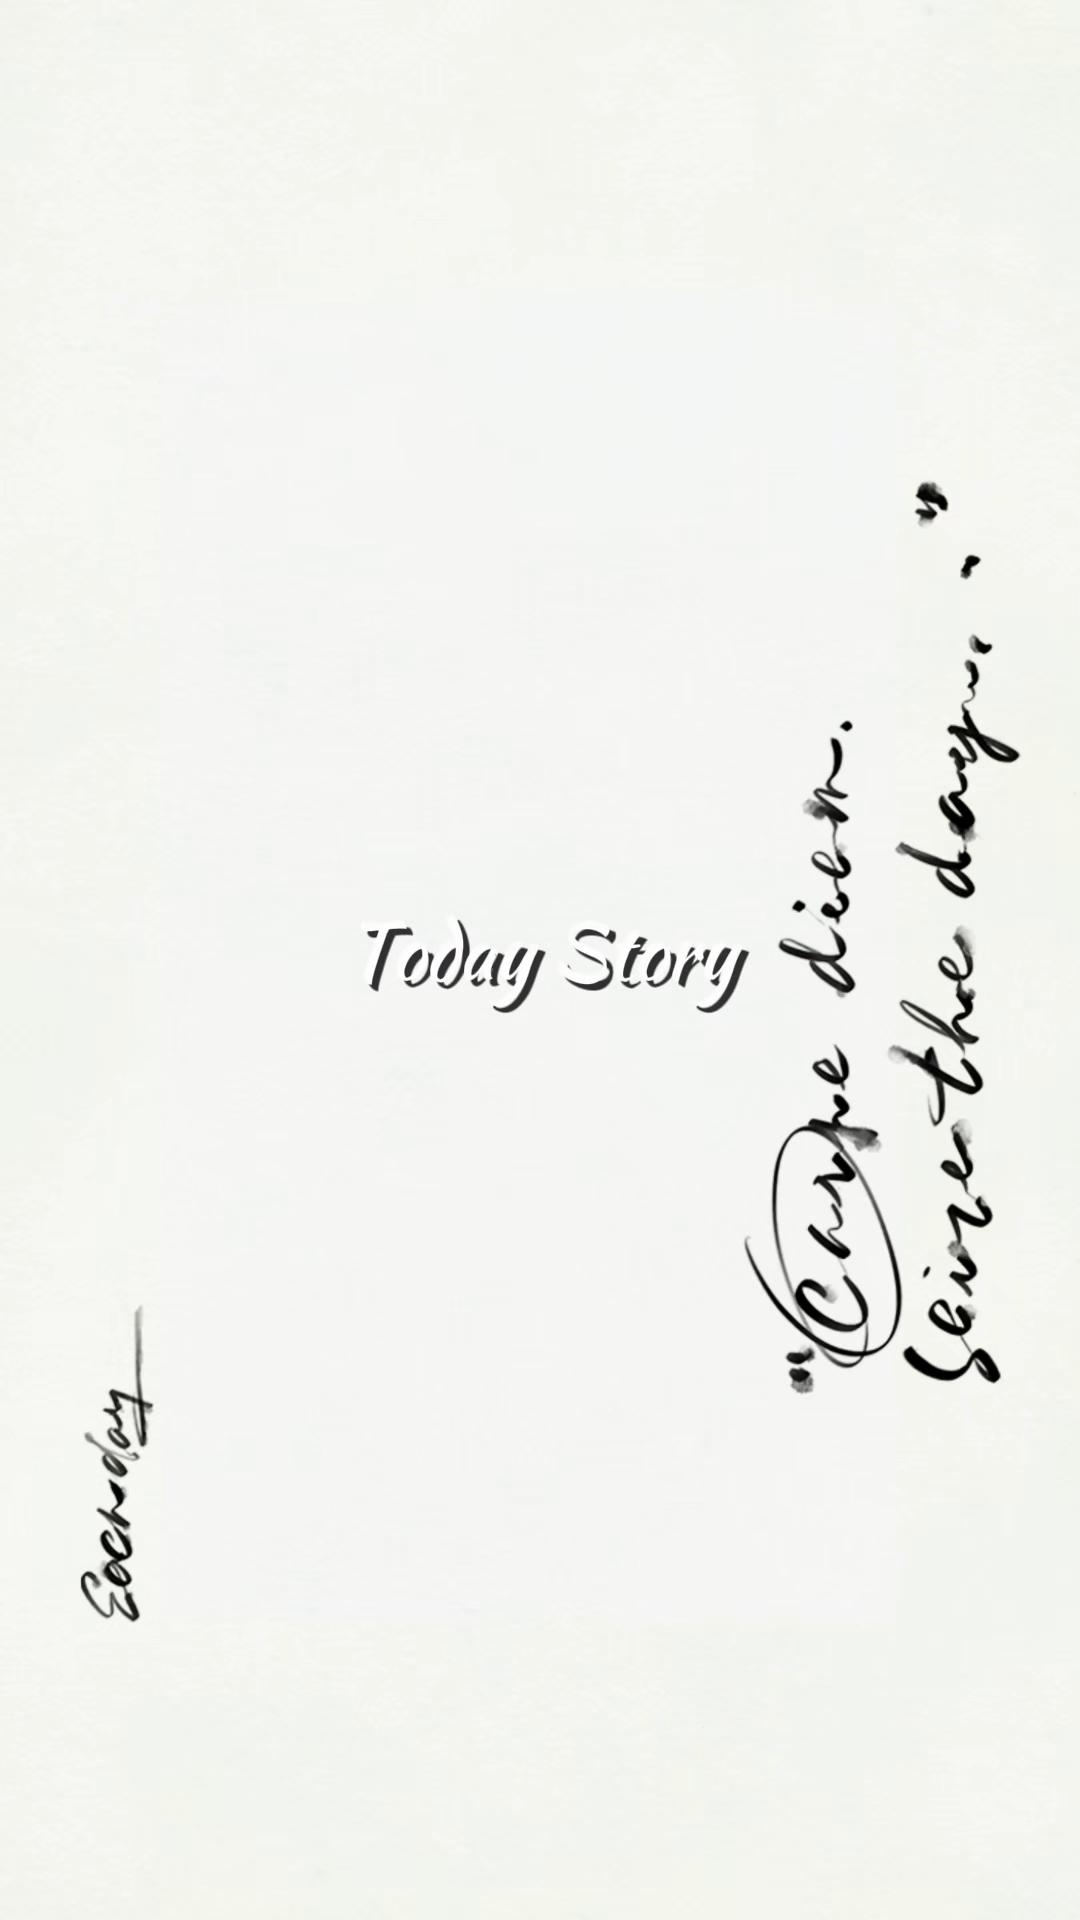 Today Story
"Carpe diem.
Seize the day. "
Eachday